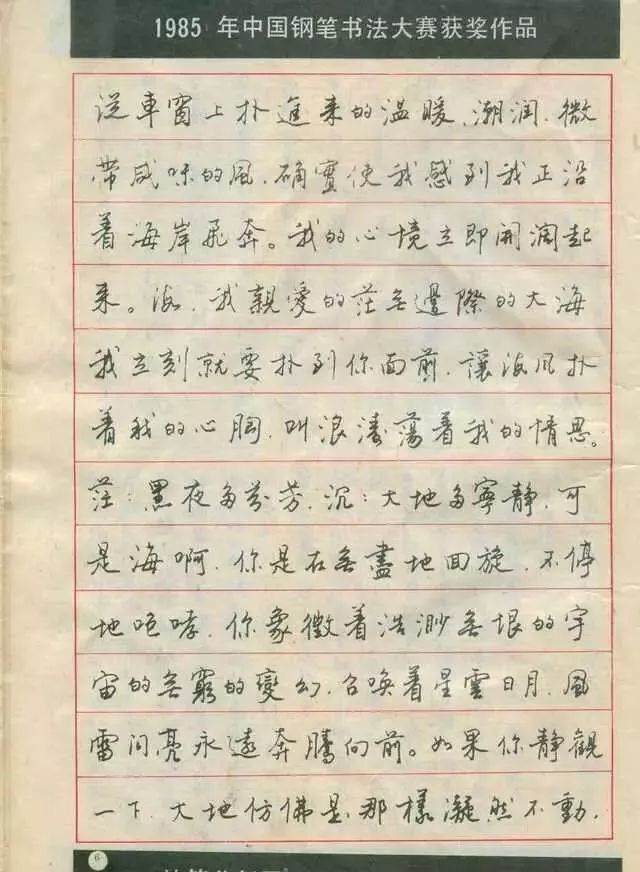 1985 年中国钢笔书法大赛获奖作品
從車窗上扑進来的温暖、潮润、微
带咸味的風，确實使我感到我正沿
着海岸飛奔。我的心境立即開阔起
来。海，我親愛的茫無邊際的大海
我立刻就要扑到你面前，讓海风扑
着我的心胸，叫浪濤蕩着我的情思。
茫：黑夜多芬芳，沉：大地多寧静，可
是海啊，你是在無盡地回旋，不停
地咆哮，你象徵着浩渺無垠的宇
宙的無窮的變幻，召唤着星雲日月，風
雷闪亮永遠奔騰向前。如果你静觀
一下，大地仿佛是那樣凝然不動，
6